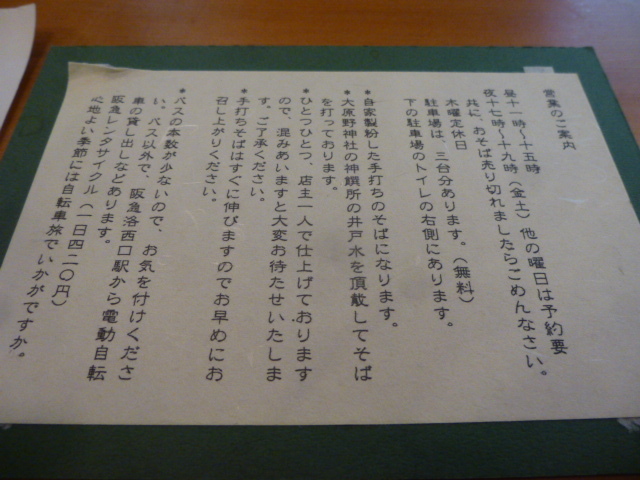 営業のご案内
昼十一時〜十五時
夜十七時〜十九時（金土）他の曜日は予約要
共に、おそば売り切れましたらごめんなさい。
木曜定休日
駐車場は、三台分あります。（無料）
下の駐車場のトイレの右側にあります。
＊自家製粉した手打ちのそばになります。
＊大原野神社の神饌所の井戸水を頂戴してそば
を打っております。
＊ひとつひとつ、店主一人で仕上げております
ので、混みあいますと大変お待たせいたしま
す。ご了承ください。
＊手打ちそばはすぐに伸びますのでお早めにお
召し上がりください。
＊バスの本数が少ないので、お気を付けくださ
い。バス以外で、阪急洛西口駅から電動自転
車の貸し出しなどあります。
阪急レンタサイクル（一日四二〇円）
心地よい季節には自転車旅でいかがですか。